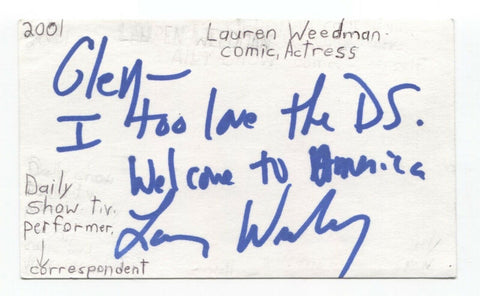 2001
Lauren Weedman
comic, Actress
Glen-
I too love the DS.
Welcome to America
Daily
Show t.v.
performer,
correspondent